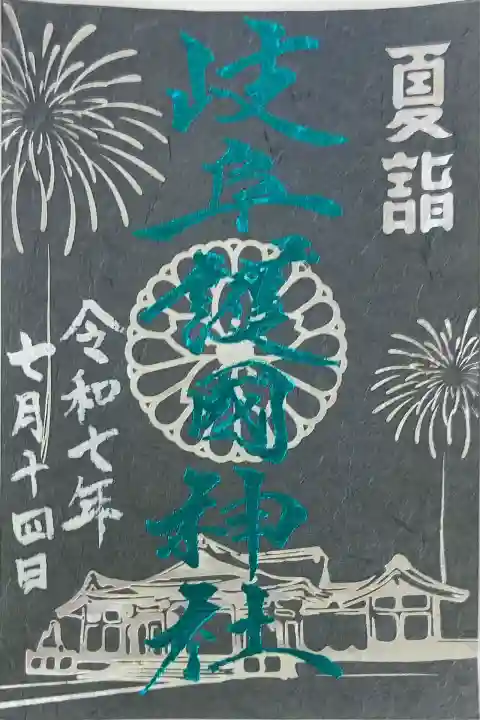 夏詣
岐阜護國神社
令和七年
七月十四日